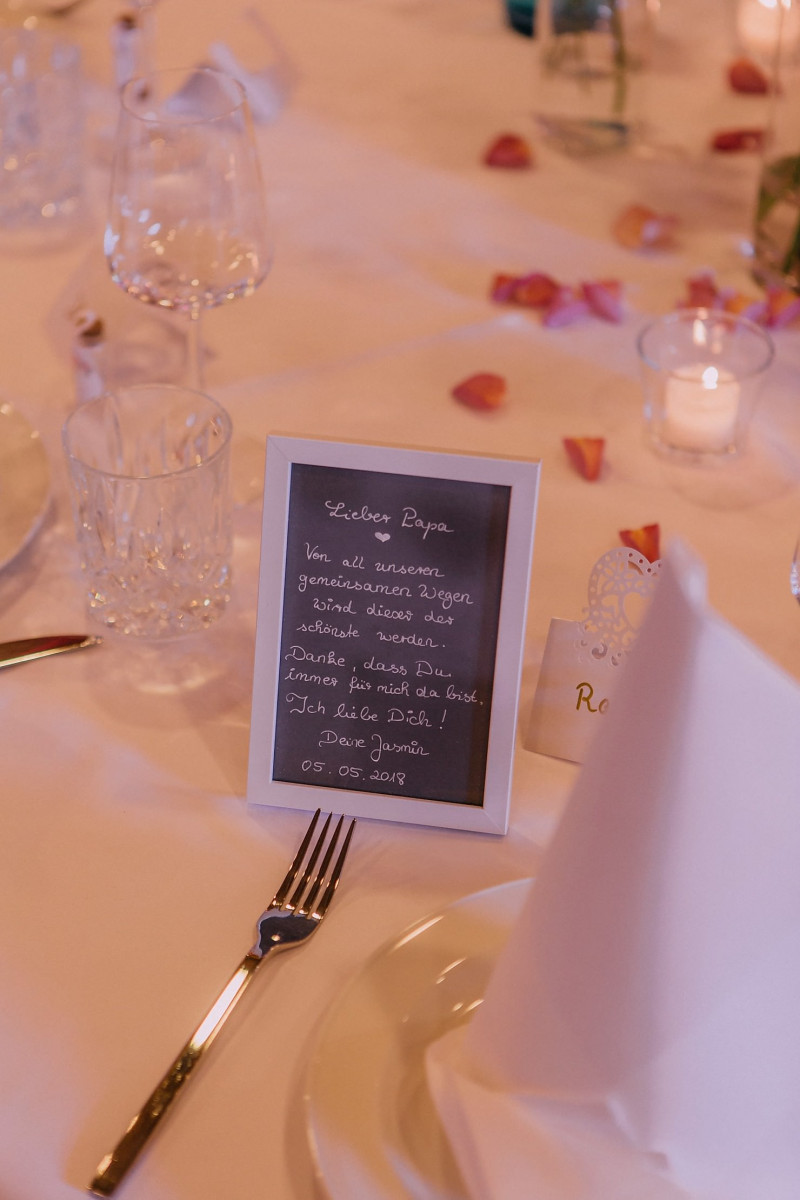 Lieber Papa
Von all unseren
gemeinsamen Wegen
wird dieser der
schönste werden.
Danke, dass Du
immer für mich da bist.
Ich liebe Dich!
Deine Jasmin
05.05.2018